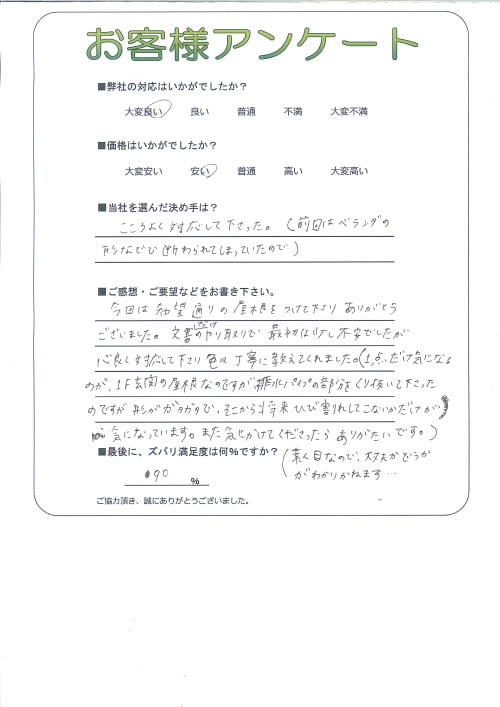 お客様アンケート
■弊社の対応はいかがでしたか?
大変良い 良い 普通 不満 大変不満
■価格はいかがでしたか?
大変安い 安い 普通 高い 大変高い
■当社を選んだ決め手は?
こころよく対応して下さった。(前回はベランダの
形などで断わられてしまっていたので)
■ご感想・ご要望などをお書き下さい。
今回は希望通りの屋根をつけて下さりありがとう
ございました。文書だけのやり取りで最初は少し不安でしたが
心良く対応して下さり色々丁寧に教えてくれました。(1点だけ気になる
のが、1F玄関の屋根なのですが、排水パイプの部分をくり抜いて下さった
のですが形がガタガタで、そこから将来ひび割れしてこないかだけが
気になっています。また気にかけてくださったらありがたいです。)
■最後に、ズバリ満足度は何%ですか?
(素人目なので、大丈夫かどうか
がわかりかねます…
90 %
ご協力頂き、誠にありがとうございました。